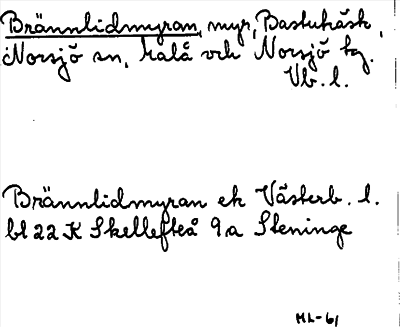 Brännlidmyran, myr, Bastuträsk,
Norsjö sn, Malå och Norsjö tg.
Vb. l.
Brännlidmyran ek Västerb. l.
bl 22 K Skellefteå 9a Steninge
ML-61